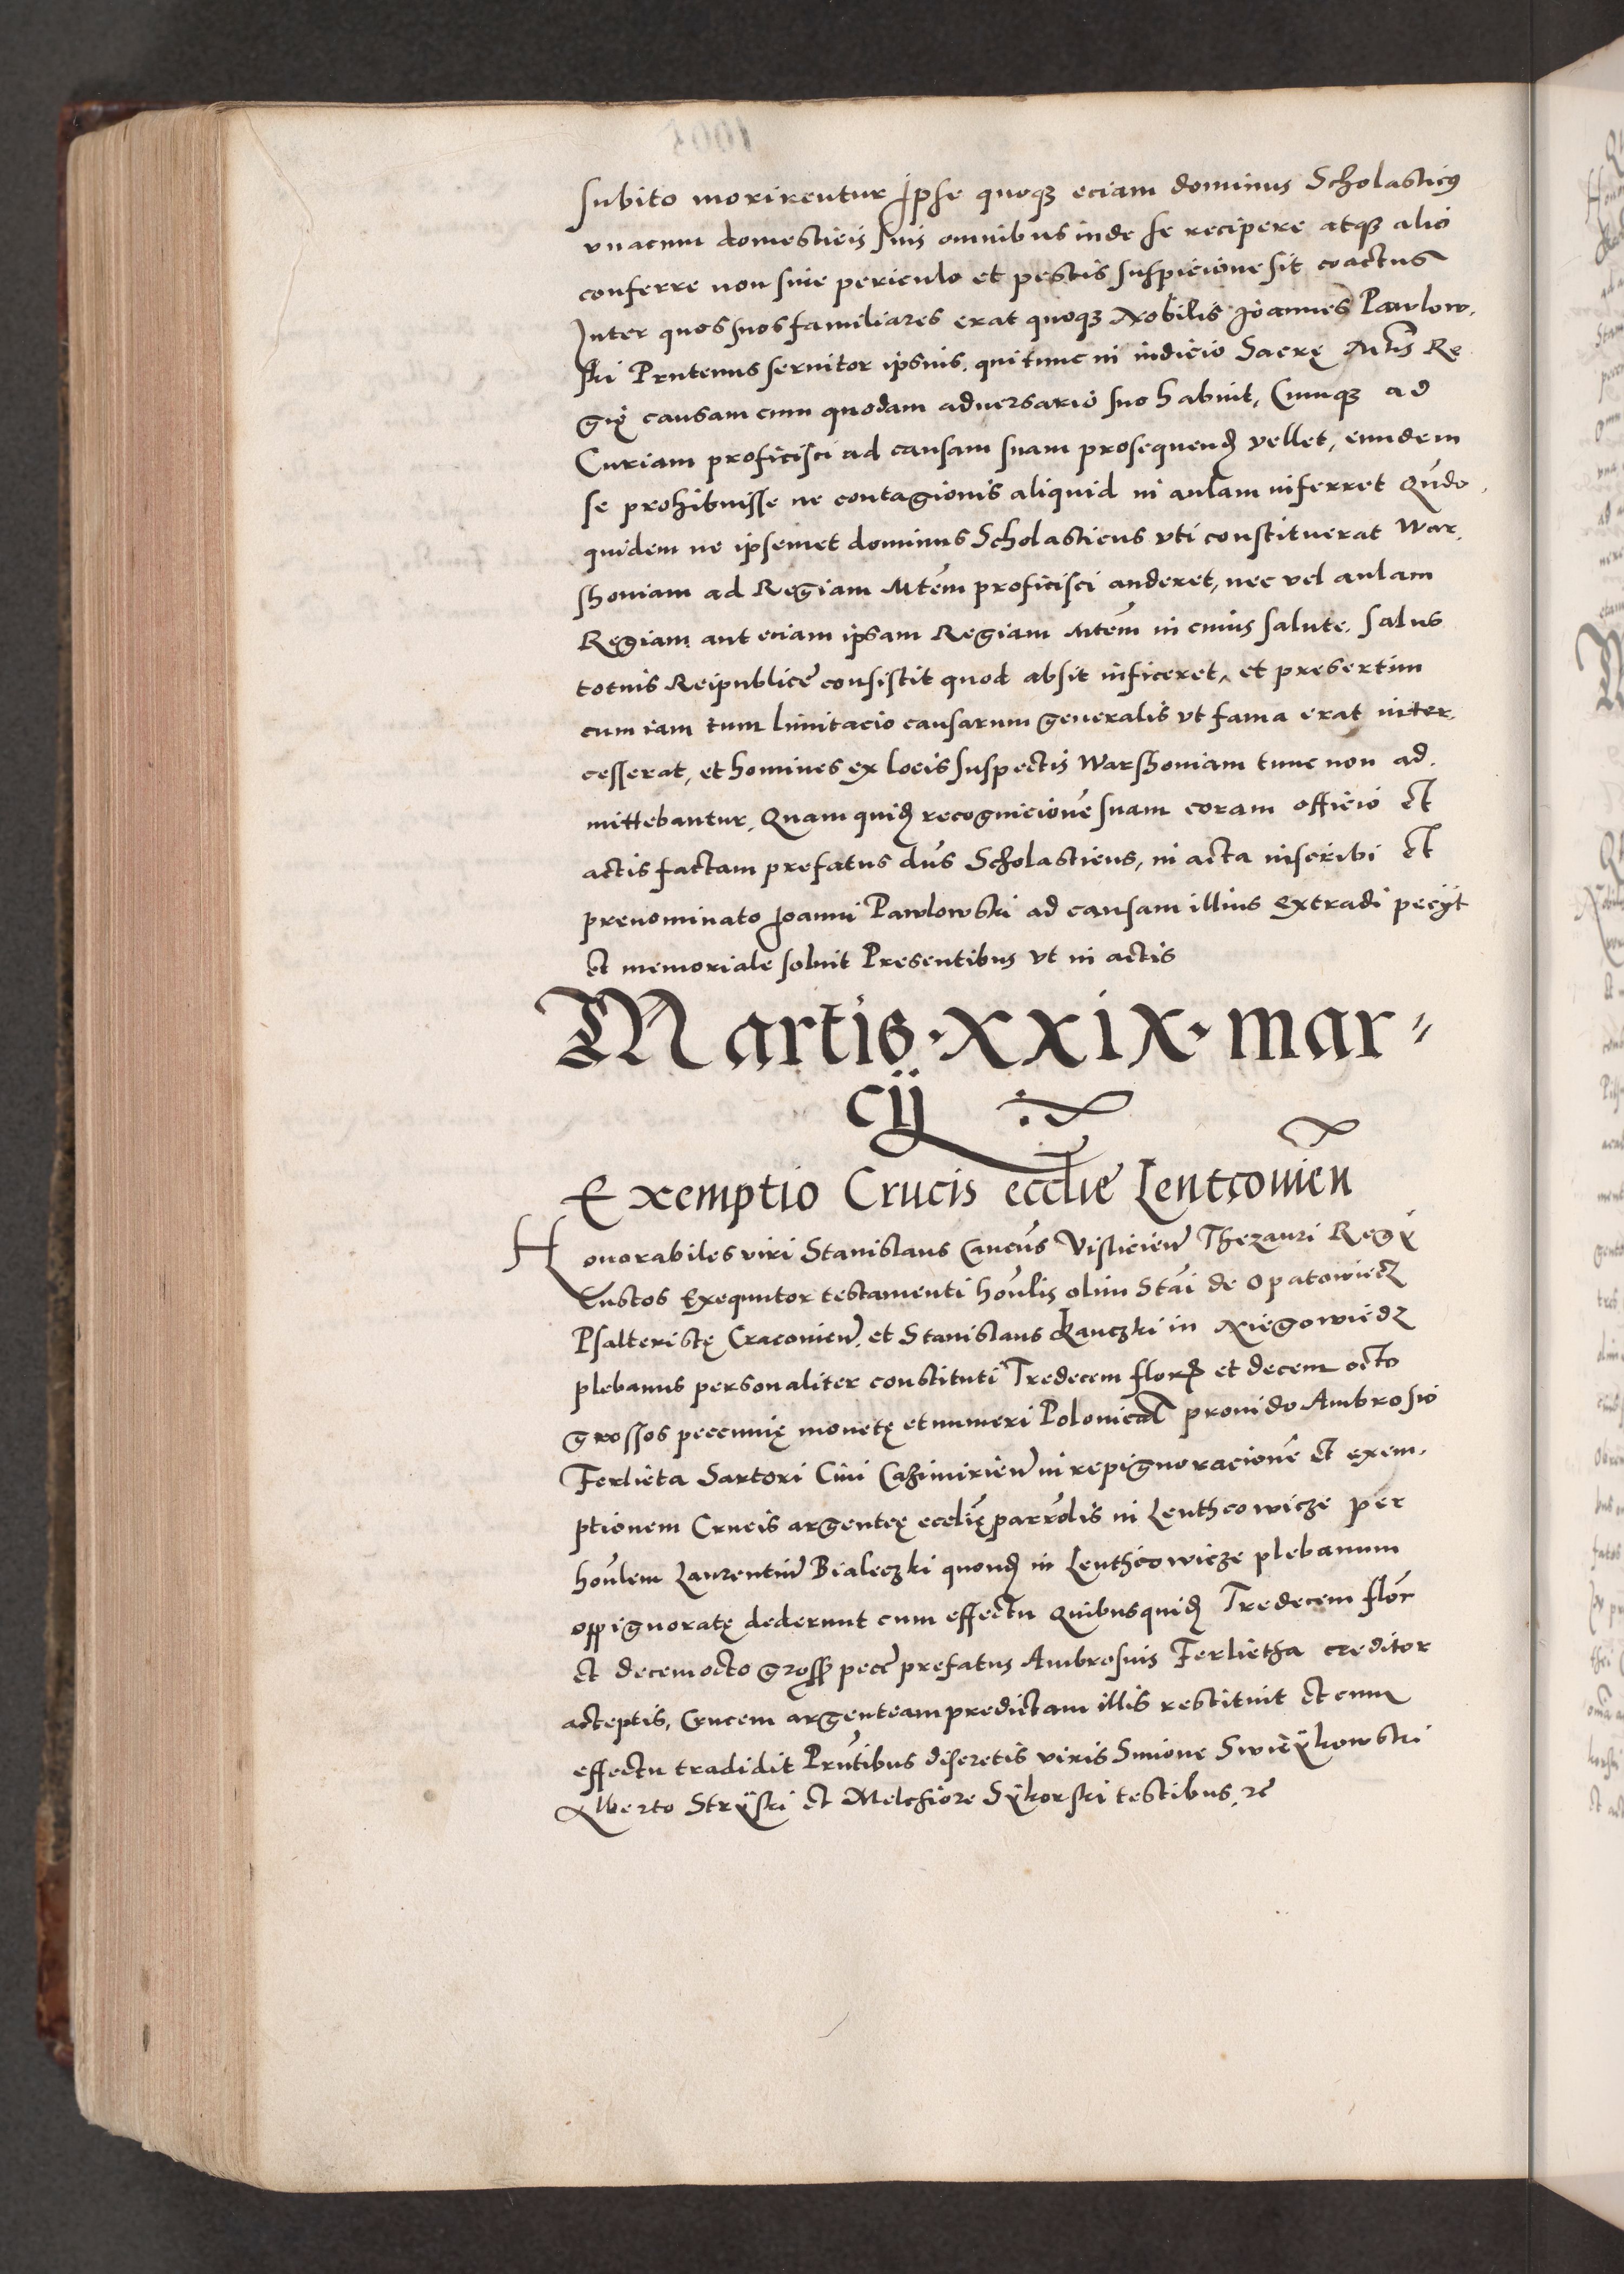 subito morirentur Ipse quoqȝ eciam dominus Scholasticus
vnacum domesticis suis omnibus inde se recipere atqȝ alio
conferre non sine periculo et pestis suspicione sit coactus
Inter quos suos familiares erat quoqȝ Nobilis Joannes Pawlow,
ski Prutenus seruitor ipsius, qui tunc in iudicio Sacrę Mtis Re
gię causam cum quodam aduersario suo habuit, Cumqȝ ad
Curiam proficisci ad causam suam prosequend vellet, eundem
se prohibuisse ne contagionis aliquid in aulam inferret Qn̄do,
quidem ne ipsemet dominus Scholasticus vti constituerat War,
shouiam ad Regiam Mtem proficisci auderet, nec vel aulam
Regiam, aut eciam ipsam Regiam Mtem in cuius salute, salus
totius Reipublice consistit quod absit inficeret, et presertim
cum iam tum limitacio causarum generalis vt fama erat inter,
cesserat, et homines ex locis suspectis Warshouiam tunc non ad,
mittebantur, Quam quid recognicionē suam coram officio et
actis factam prefatus dn̄s Scholasticus, in acta inscribi et
prenominato Joanni Pawlowski ad causam illius extradi peciit
et memoriale soluit Presentibus vt in actis
Martis · xxix · mar⸗
cij
Exemptio Crucis ecclie Lentcouien̄
Honorabiles viri Stanislaus Cancus Vislicien Thezauri Regii
Custos Exequutor testamenti hon̄lis olim Stāi de Opatowiecz
Psalteristę Cracouien, et Stanislaus Kanczki in Niegowiedz
plebanus personaliter constituti Tredecem flor et decem octo
grossos peccunię monetę et numeri Polonical prouido Ambrosio
Ferlieta Sartori Ciui Cazimirien in repignoracionē et exem,
ptionem Crucis argenteę ecclię parrolis in Lenthcowicze per
hon̄lem Laurentiū Bialeczki quond in Lenthcowicze plebanum
oppignoratę dederunt cum effectu Quibusquid Tredecem flor
et decemocto gross pecc prefatus Ambrosius Ferlietha creditor
acceptis, Crucem argenteam predictam illis restituit et cum
effectu tradidit Prn̄tibus discretis viris Simone Swieykowski
Alberto Stryski et Melchiore Sykorski testibus, rc